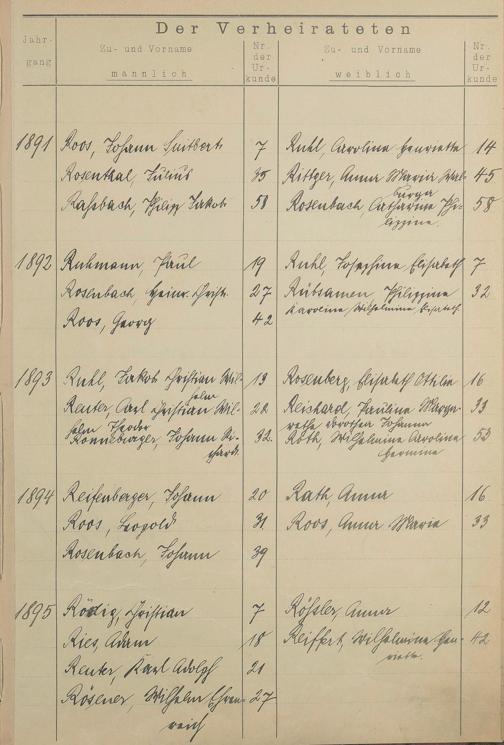 Der Verheirateten
Jahr-
gang
Zu- und Vorname
männlich
Nr.
der
Ur-
kunde
Zu- und Vorname
weiblich
Nr.
der
Ur-
kunde
1891 Roos, Johann Suitbert 7 Ruhl, Caroline Henriette 14
Rosenthal, Julius 35 Rittger, Anna Maria Wal- 45
burga
Rasbach, Philipp Jakob 58 Rosenbach, Catharine Phi- 58
lippine.
1892 Ruhmann, Paul 19 Ruhl, Josephine Elisabeth 7
Rosenbach, Heinr. Christ. 27 Rübsamen Philippine 32
Karoline, Wilhelmine, Elisabeth
Roos, Georg 42
1893 Ruhl, Jakob Christian Wil- 13 Rosenberg, Elisabeth Ottilie 16
helm
Reuter, Carl Christian Wil- 22 Reichard, Pauline Marga- 33
helm Theodor rethe Dorothea Johanna
Ronneberger, Johann Ri- 32. Roth, Wilhelmine Caroline 53
chard Hermine
1894 Reifenberger, Johann 20 Rath, Anna 16
Roos, Leopold 31 Roos, Anna Maria 33
Rosenbach, Johann 39
1895 Rödig, Christian 7 Rößler, Anna 12
Ries, Adam 18 Reiffert, Wilhelmine Hen- 42
riette.
Reuter, Karl Adolf 21
Rösener, Wilhelm Ehren- 27
reich